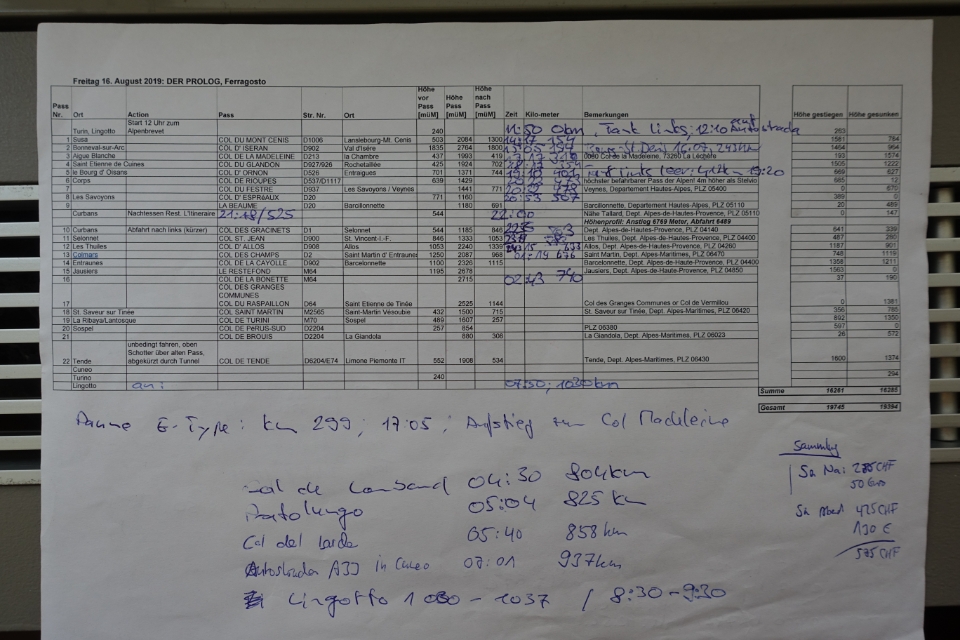 Freitag 16. August 2019: DER PROLOG, Ferragosto
Pass Nr. Ort Action Pass Str. Nr. Ort Höhe vor Pass [müM] Höhe Pass [müM] Höhe nach Pass [müM] Zeit Kilo-meter Bemerkungen Höhe gestiegen Höhe gesunken
Turin, Lingotto Start 12 Uhr zum Alpenbrevet 240 11:50 0km, Tank links: 12:10 Autostrada 263
1 Susa COL DU MONT CENIS D1006 Lanslebourg-Mt. Cenis 503 2084 1300 154 1581 784
2 Bonneval-sur-Arc COL D' ISERAN D902 Val d'Isère 1835 2764 1800 1464 964
3 Aigue Blanche COL DE LA MADELEINE D213 la Chambre 437 1993 419 Col de la Madeleine, 73260 La Léchère 193 1574
4 Saint Etienne de Cuines COL DU GLANDON D927/926 Rochetaillée 425 1924 702 1505 1222
5 le Bourg d' Oisans COL D' ORNON D526 Entraigues 701 1371 744 19:20 669 627
6 Corps COL DE RIOUPES D537/D1117 639 1429 höchster befahrbarer Pass der Alpen! 4m höher als Stelvio 665 12
7 COL DU FESTRE D937 Les Savoyons / Veynes 1441 771 Veynes, Departement Hautes-Alpes, PLZ 05400 0 670
8 Les Savoyons COL D' ESPRéAUX D20 771 1160 20:53 507 389
9 LA BEAUME D20 Barcillonnette 1180 691 Barcillonnette, Departement Hautes-Alpes, PLZ 05110 20 489
Curbans Nachtessen Rest. L'Itineraire 21:18/525 544 22:00 Nähe Tallard, Dept. Alpes-de-Haute-Provence, PLZ 05110 0 147
Höhenprofil: Anstieg 6769 Meter, Abfahrt 6489
10 Curbans Abfahrt nach links (kürzer) COL DES GRACINETS D1 Selonnet 544 1185 846 Dept. Alpes-de-Haute-Provence, PLZ 04140 641 339
11 Selonnet COL ST. JEAN D900 St. Vincent-l.-F. 846 1333 1053 Les Thuiles, Dept. Alpes-de-Haute-Provence, PLZ 04400 487 280
12 Les Thuiles COL D' ALLOS D908 Allos 1053 2240 1339 Allos, Dept. Alpes-de-Haute-Provence, PLZ 04260 1187 901
13 Colmars COL DES CHAMPS D2 Saint Martin d' Entraunes 1250 2087 968 01:19 676 Saint Martin, Dept. Alpes-Maritimes, PLZ 06470 748 1119
14 Entraunes COL DE LA CAYOLLE D902 Barcelonnette 1100 2326 1115 Barcelonnette, Dept. Alpes-de-Haute-Provence, PLZ 04400 1358 1211
15 Jausiers LE RESTEFOND M64 1195 2678 Jausiers, Dept. Alpes-de-Haute-Provence, PLZ 04850 1563 0
16 COL DE LA BONETTE M64 2715 02:43 740 37 190
17 COL DES GRANGES COMMUNES COL DU RASPAILLON D64 Saint Etienne de Tinée 2525 1144 Col des Granges Communes or Col de Vermillou 0 1381
18 St. Sauveur sur Tinée COL SAINT MARTIN M2565 Saint-Martin Vésoubie 432 1500 715 St. Sauveur sur Tinée, Dept. Alpes-Maritimes, PLZ 06420 356 785
19 La Ribaya/Lantosque COL DE TURINI M70 Sospel 469 1607 257 892 1350
20 Sospel COL DE PéRUS-SUD D2204 257 654 PLZ 06380 597 0
21 COL DE BROUIS D2204 La Giandola 880 308 La Giandola, Dept. Alpes-Maritimes, PLZ 06023 26 572
22 Tende unbedingt fahren, oben Schotter über alten Pass, abgekürzt durch Tunnel COL DE TENDE D6204/E74 Limone Piemonte IT 552 1908 534 Tende, Dept. Alpes-Maritimes, PLZ 06430 1600 1374
Cuneo
Turino 240 294
Lingotto an: 07:50; 1030km
Summe 16261 16285
Gesamt 19745 19394
Panne E-Type: km 299; 17:05; Aufstieg zum Col Madeleine
Col de Lombard 04:30 804km
Pratolungo 05:04 825 km
Col del 05:40 858km
Autostrada A33 in Cuneo 07:01 937km
Lingotto 1030 - 1037 / 8:30-9:30
Sammlg
Sa Na: CHF
50 Euro
Sa Abend 425CHF
130 €
575 CHF